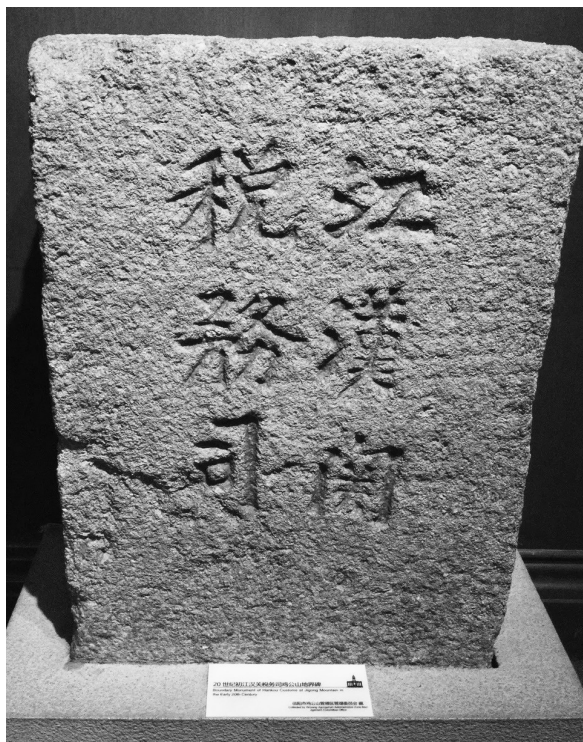 江漢関
税務司
20世纪初江汉关税务司鸡公山地界碑
Boundary Monument of Hankow Customs at Jigong Mountain in
the Early 20th Century
信阳市鸡公山管理区管理委员会 藏